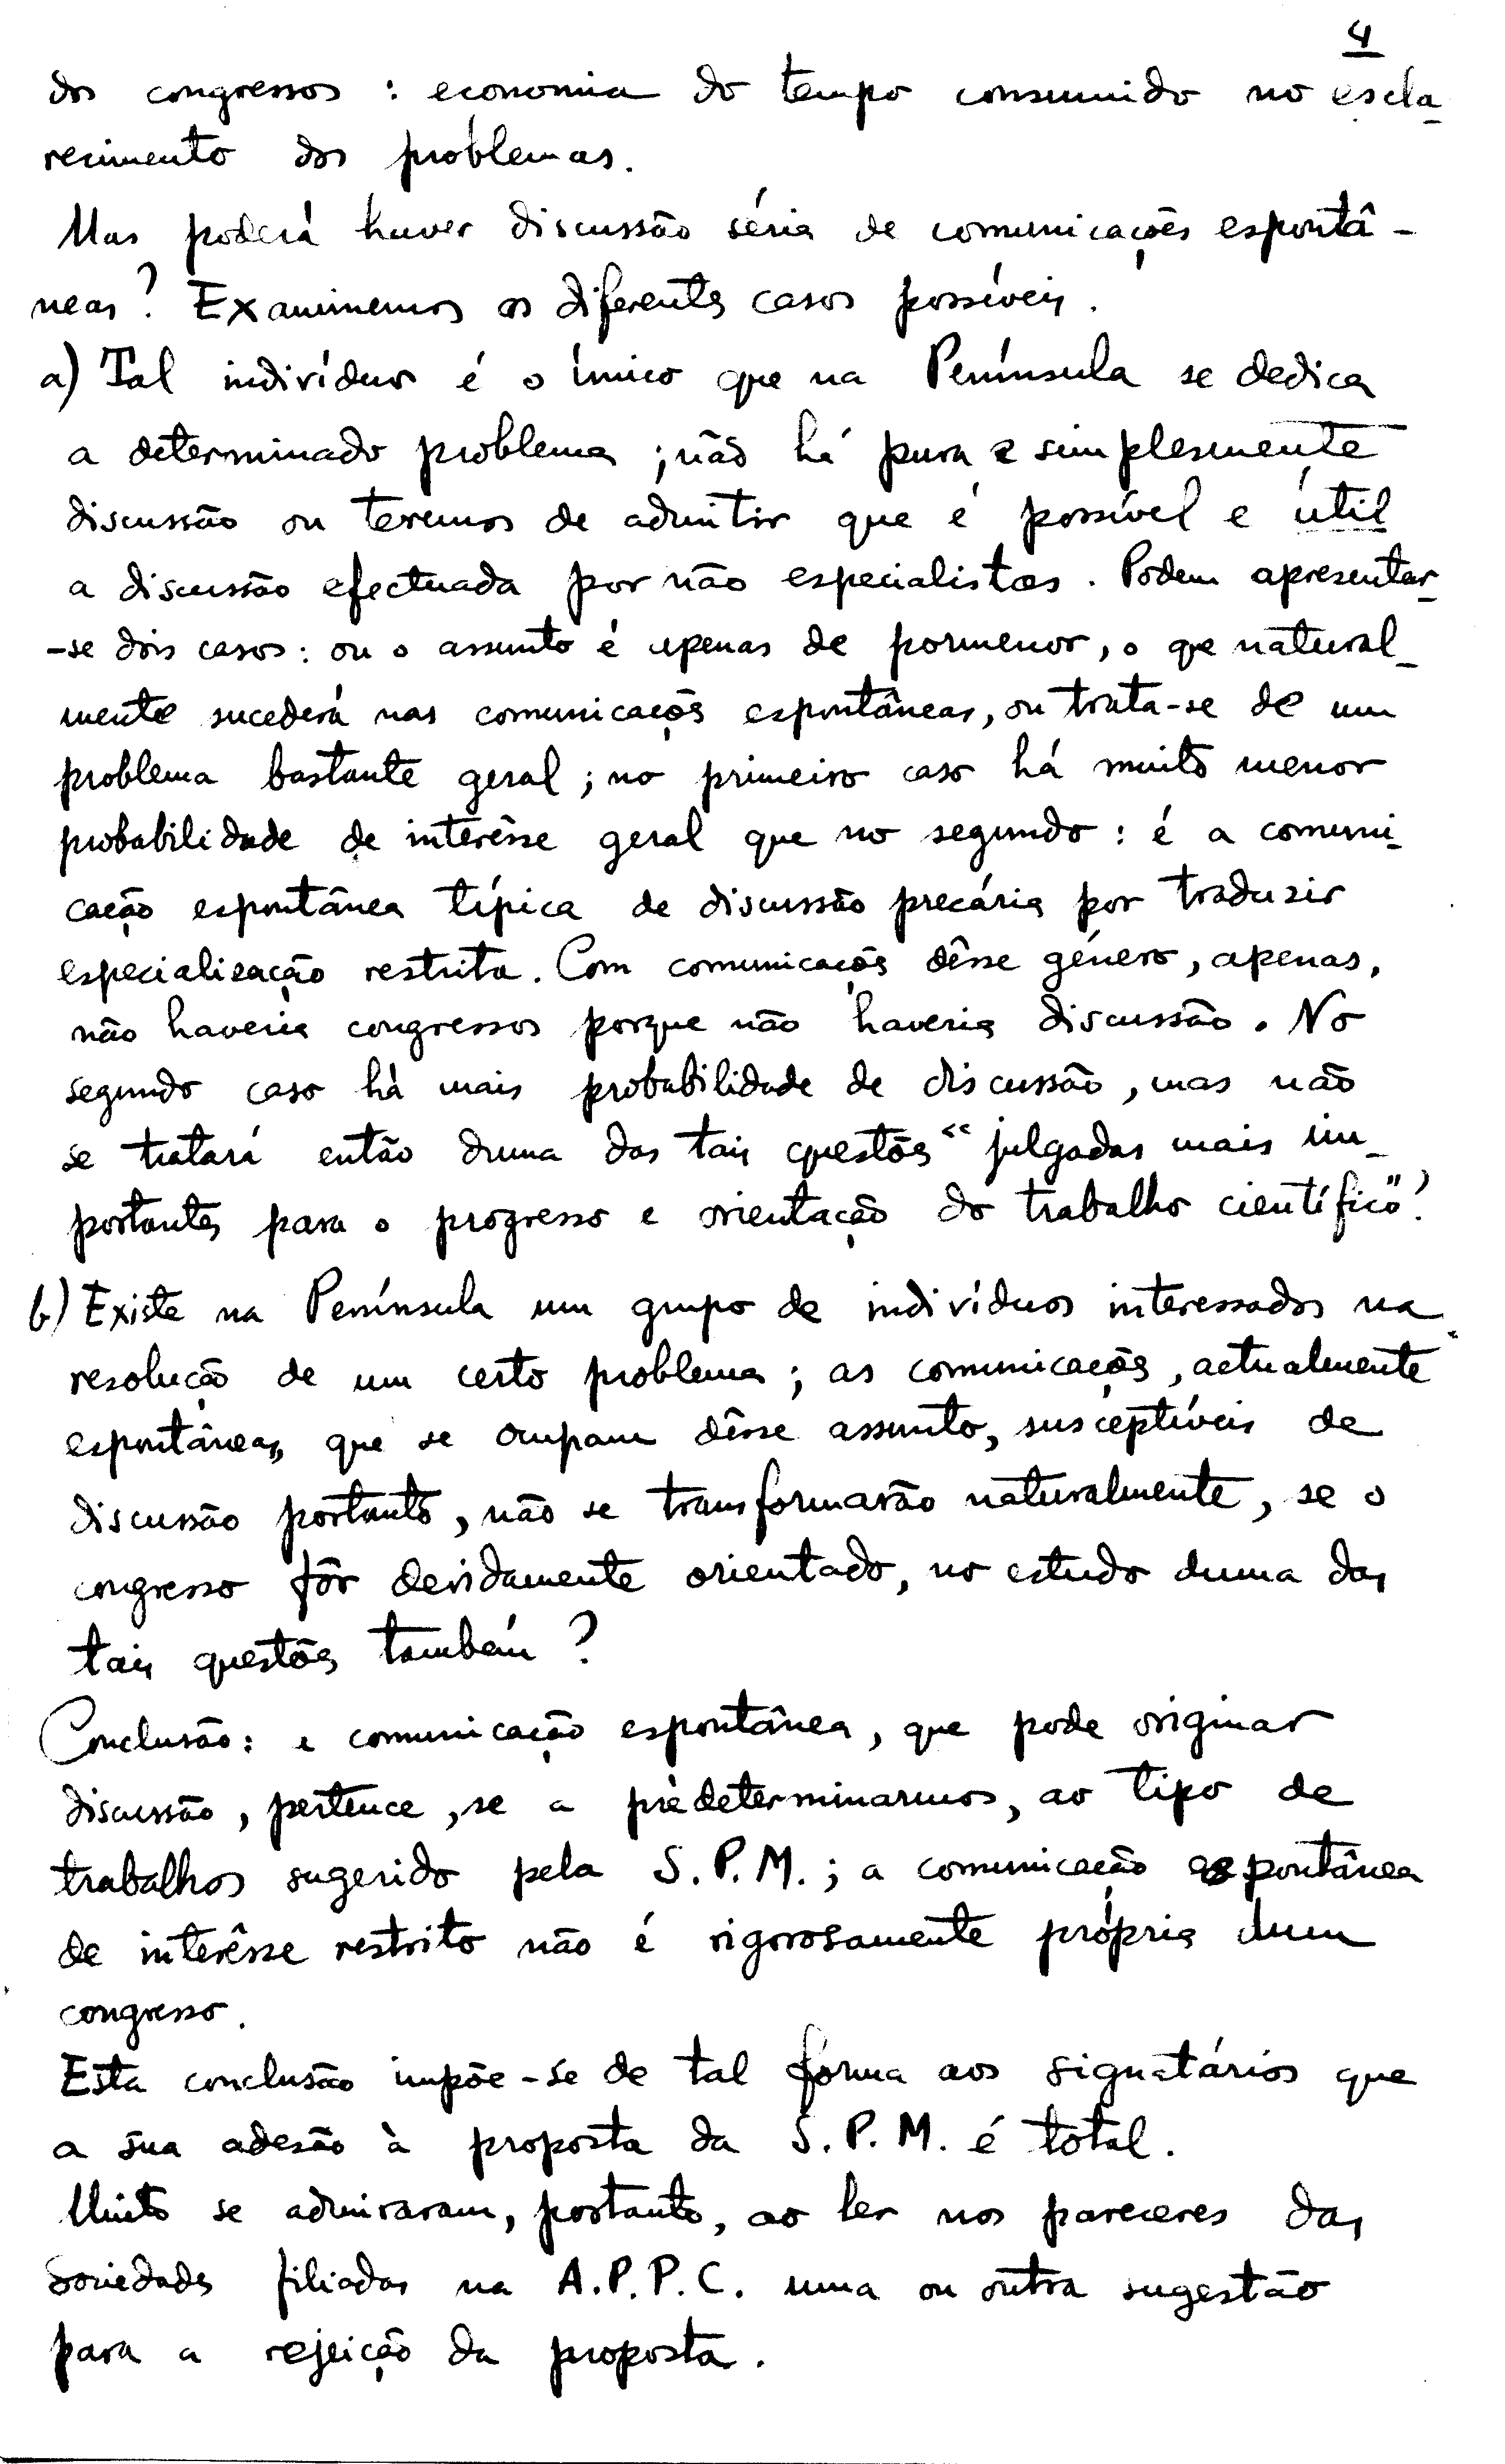 4
dos congressos : economia do tempo consumido no escla_
recimento dos problemas.
Mas poderá haver discussão séria de comunicações espontâ -
neas? Examinemos os diferentes casos possíveis.
a) Tal indivíduo é o único que na Península se dedica
a determinado problema ; não há pura e simplesmente
discussão ou teremos de admitir que é possível e útil
a discussão efectuada por não especialistas. Podem apresentar_
-se dois casos: ou o assunto é apenas de pormenor, o que natural_
mente sucederá nas comunicações espontâneas, ou trata-se de um
problema bastante geral ; no primeiro caso há muito menor
probabilidade de interêsse geral que no segundo : é a comuni_
cação espontânea típica de discussão precária por traduzir
especialização restrita. Com comunicações dêsse género, apenas,
não haveria congressos porque não haveria discussão. No
segundo caso há mais probabilidade de discussão, mas não
se tratará então duma das tais questões "julgadas mais im_
portantes para o progresso e orientação do trabalho científico"?
b) Existe na Península um grupo de indivíduos interessados na
resolução de um certo problema ; as comunicações, actualmente
espontâneas, que se ocupam dêsse assunto, susceptíveis de
discussão portanto, não se transformarão naturalmente, se o
congresso fôr devidamente orientado, no estudo duma das
tais questões também ?
Conclusão: a comunicação espontânea, que pode originar
discussão, pertence, se a prèdeterminarmos, ao tipo de
trabalhos sugerido pela S.P.M. ; a comunicação espontânea
de interêsse restrito não é rigorosamente própria dum
congresso.
Esta conclusão impõe-se de tal forma aos signatários que
a sua adesão à proposta da S.P.M. é total.
Muito se admiraram, portanto, ao ler nos pareceres das
Sociedades filiadas na A.P.P.C. uma ou outra sugestão
para a rejeição da proposta.